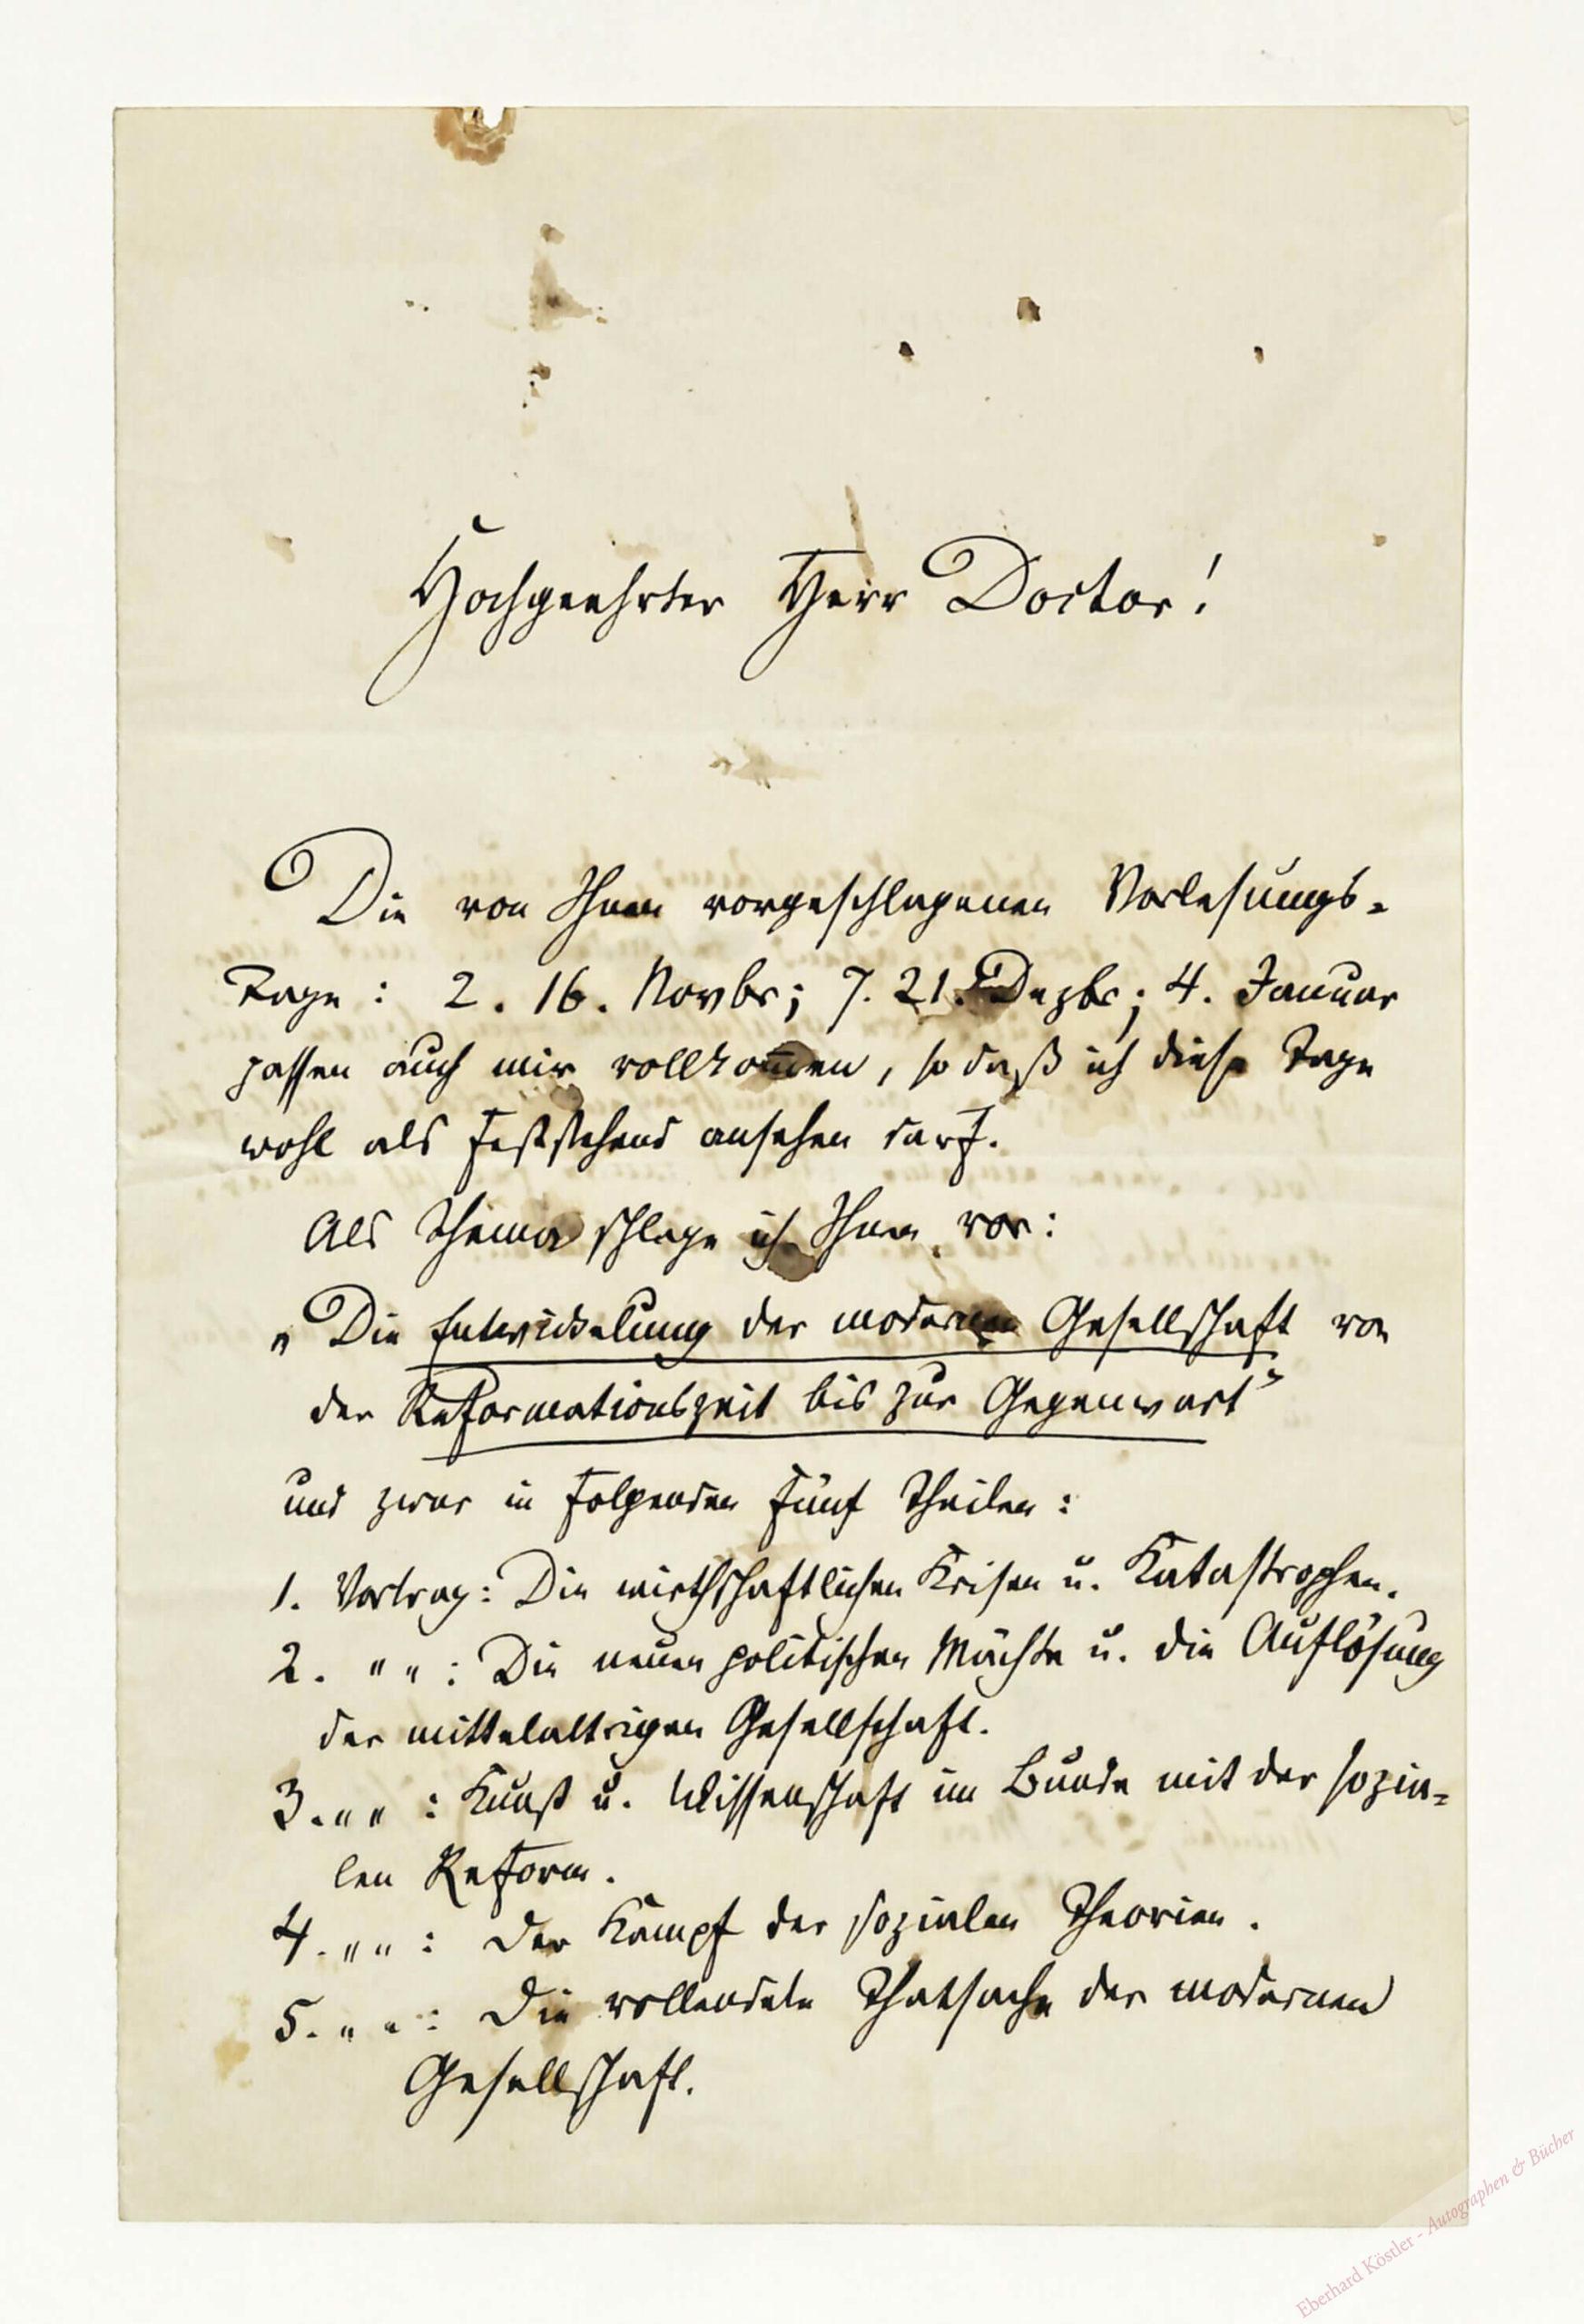 Hochgeehrter Herr Doctor!
Die von Ihnen vorgeschlagenen Vorlesungs-
Tage: 2. 16. Novbr; 7. 21. Dezbr; 4. Januar
passen auch mir vollkom̅en, so daß ich diese Tage
wohl als feststehend ansehen darf.
Als Thema schlage ich Ihnen vor:
„Die Entwickelung der modernen Gesellschaft von
der Reformationszeit bis zur Gegenwart"
und zwar in folgenden fünf Theilen:
1. Vortrag: Die wirthschaftlichen Krisen u. Katastrophen.
2. " " : Die neuen politischen Mächte u. die Auflösung
der mittelaltrigen Gesellschaft.
3. " " : Kunst u. Wissenschaft im Bunde mit der sozia-
len Reform.
4. " " : Der Kampf der sozialen Theorien.
5. " " : Die vollendete Thatsache der modernen
Gesellschaft.
Eberhard Köstler - Autographen & Bücher